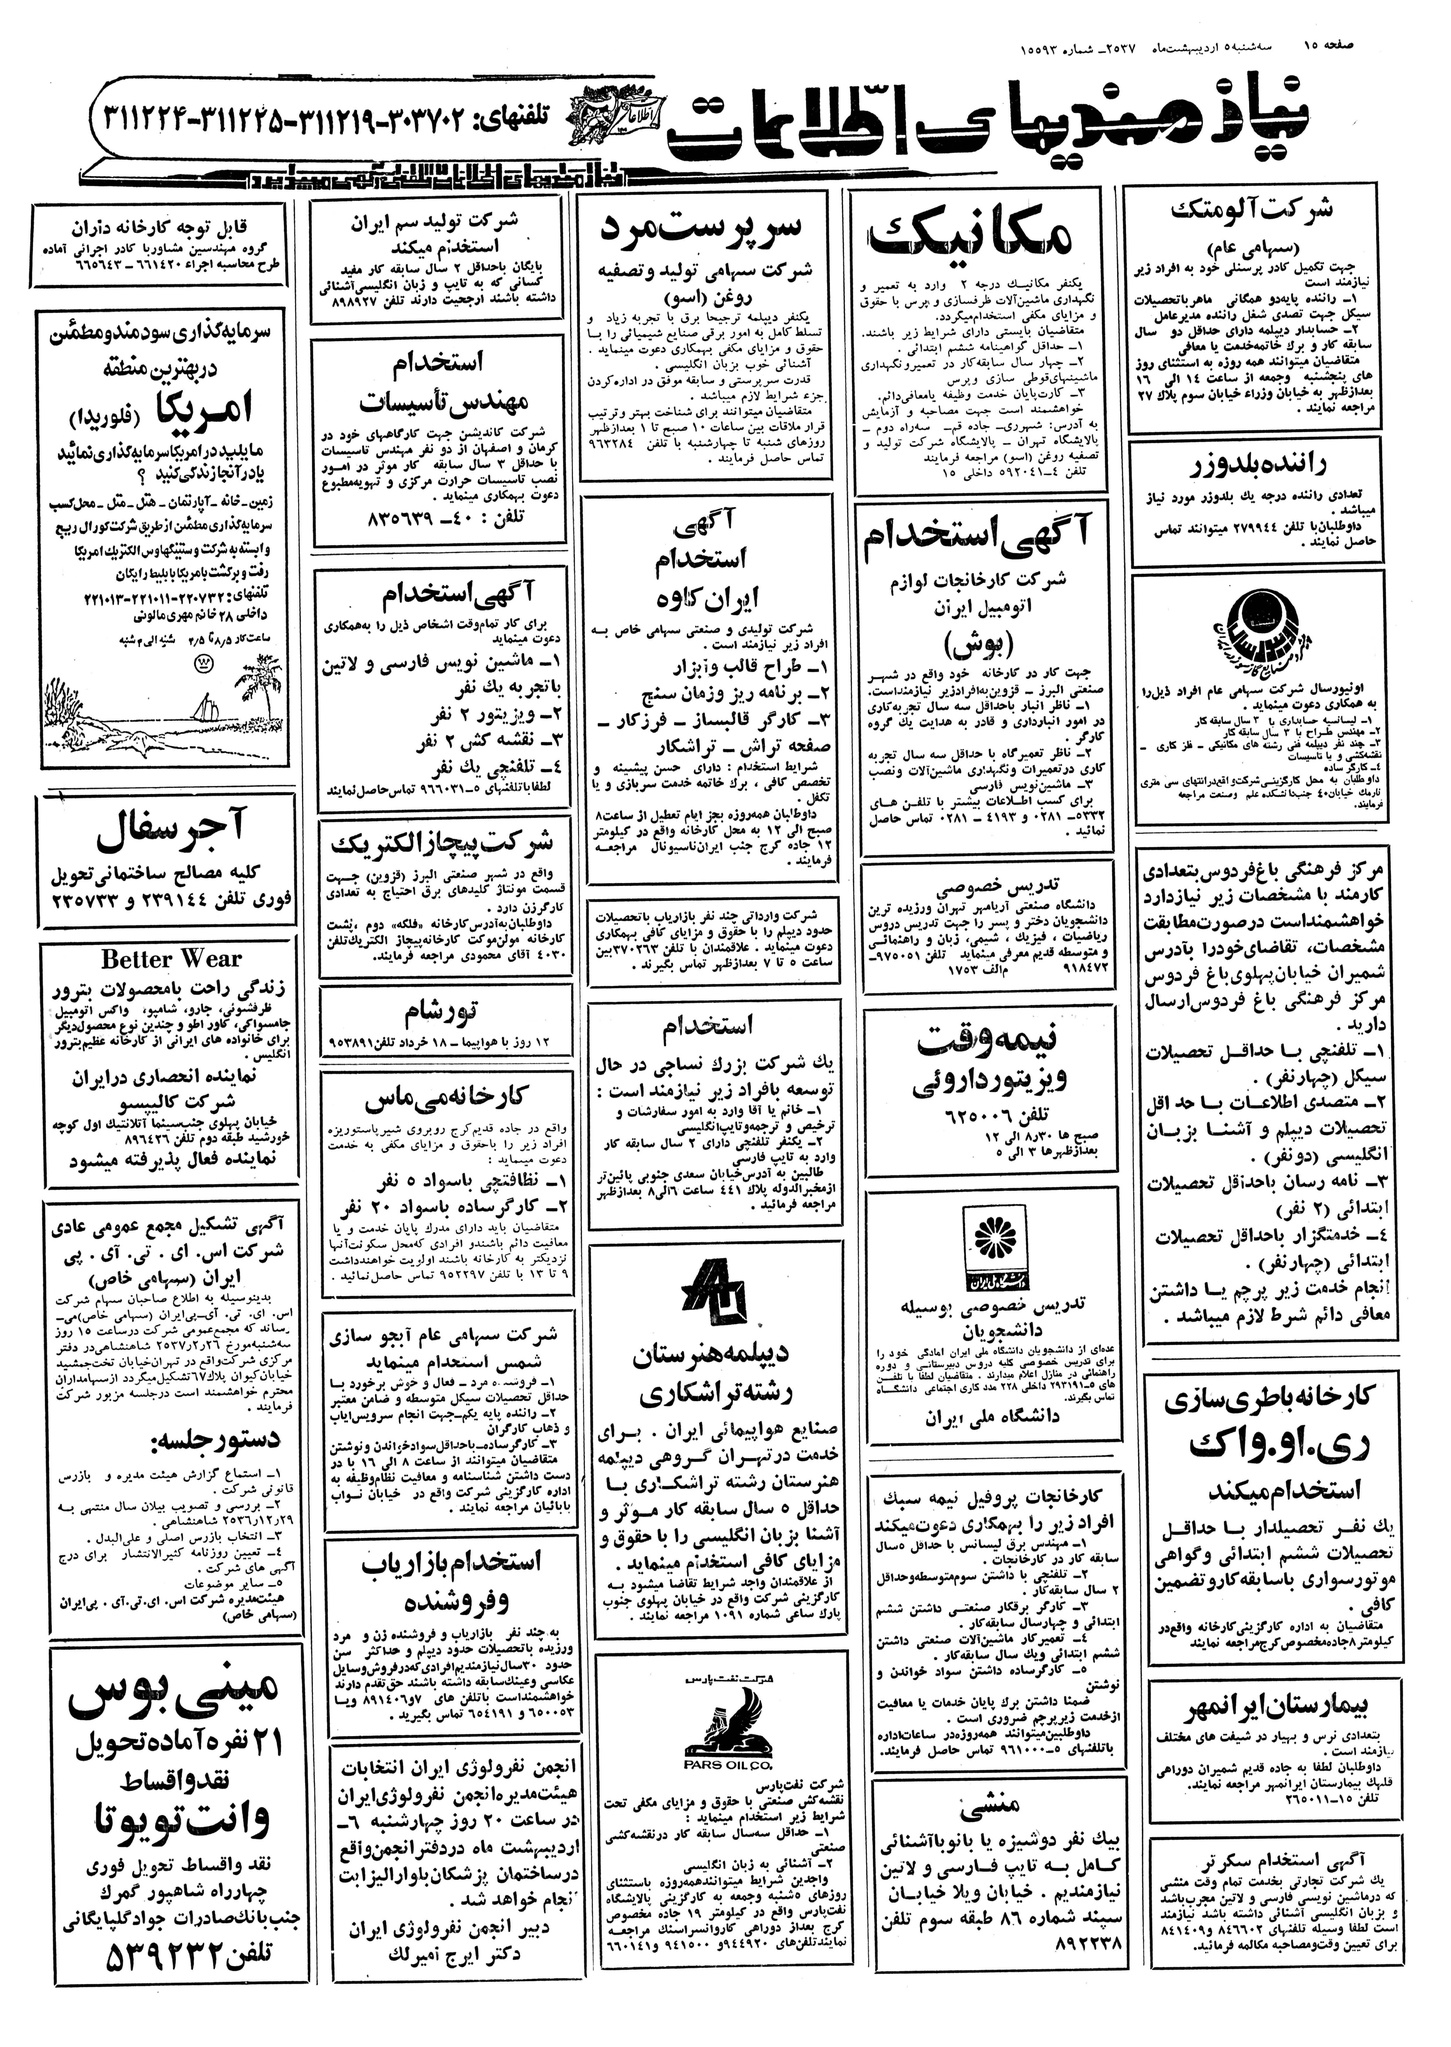 صفحه ۱۵ سه‌شنبه ۵ اردیبهشت ماه ۲۵۳۷ـ شماره ۱۵۵۹۳
نیازمندیهای اطلاعات
تلفنهای: ۳۰۳۷۰۲-۳۱۱۲۱۹-۳۱۱۲۲۵-۳۱۱۲۲۴
نیازمندیهای اطلاعات تلفنی آگهی میپذیرد
شرکت آلومتک
(سهامی عام)
جهت تکمیل کادر پرسنلی خود به افراد زیر
نیازمند است
۱ـ راننده پایه‌دو همگانی ماهر باتحصیلات
سیکل جهت تصدی شغل راننده مدیرعامل
۲ـ حسابدار دیپلمه دارای حداقل دو سال
سابقه کار و برک خاتمه‌خدمت یا معافی
متقاضیان میتوانند همه روزه به استثنای روز
های پنجشنبه وجمعه از ساعت ۱۴ الی ۱۶
بعدازظهر به خیابان وزراء خیابان سوم پلاک ۲۷
مراجعه نمایند .
راننده بلدوزر
تعدادی راننده درجه یک بلدوزر مورد نیاز
میباشد .
داوطلبان با تلفن ۲۷۹۹۴۴ میتوانند تماس
حاصل نمایند .
اونیورسال شرکت سهامی عام افراد ذیل‌را
به همکاری دعوت مینماید .
۱ـ لیسانسیه حسابداری با ۳ سال سابقه کار
۲ـ مهندس طراح با ۳ سال سابقه کار
۳ـ چند نفر دیپلمه فنی رشته های مکانیکی - فلز کاری -
نقشه‌کشی و یا تاسیسات
۴ـ کارگر ساده
داوطلبان به محل کارگزینی شرکت واقع در انتهای سی متری
نارمک خیابان ۴۰ جنب دانشکده علم وصنعت مراجعه
فرمایند.
مرکز فرهنگی باغ‌فردوس بتعدادی
کارمند با مشخصات زیر نیازدارد
خواهشمنداست درصورت مطابقت
مشخصات، تقاضای خودرا بآدرس
شمیران خیابان پهلوی باغ فردوس
مرکز فرهنگی باغ فردوس ارسال
دارید .
۱ـ تلفنچی بـا حداقـل تحصیلات
سیکل (چهارنفر) .
۲ـ متصدی اطلاعات با حداقل
تحصیلات دیپلم و آشنا بزبان
انگلیسی (دونفر) .
۳ـ نامه رسان باحداقل تحصیلات
ابتدائی (۲ نفر)
۴ـ خدمتگزار باحداقل تحصیلات
ابتدائی (چهارنفر) .
انجام خدمت زیر پرچم یـا داشتن
معافی دائم شرط لازم میباشد .
کارخانه باطری‌سازی
ری.او.واک
استخدام میکند
یک نفـر تحصیلدار بـا حداقـل
تحصیلات ششم ابتدائی وگواهی
موتورسواری باسابقه‌کاروتضمین
کافی .
متقاضیان به اداره کارگزینی کارخانه واقع‌در
کیلومتر ۸ جاده مخصوص کرج مراجعه نمایند
بیمارستان ایرانمهر
بتعدادی نرس و بهیار در شیفت های مختلف
نیازمند است .
داوطلبان لطفا به جاده قدیم شمیران دوراهی
قلهک بیمارستان ایرانمهر مراجعه نمایند.
تلفن ۱۵-۲۶۵۰۱۱
آگهی استخدام سکرتر
یک شرکت تجارتی بخدمت تمام وقت منشی
که درماشین نویسی فارسی و لاتین مجرب‌باشد
و بزبان انگلیسی آشنائی داشته باشد نیازمند
است لطفا وسیله تلفنهای ۸۴۶۶۰۲ و ۸۴۱۴۰۹
برای تعیین وقت‌ومصاحبه مکالمه فرمائید.
مکانیک
یکنفر مکانیـک درجه ۲ وارد به تعمیر و
نگهداری ماشین‌آلات ظرفسازی و پرس با حقوق
و مزایای مکفی استخدام‌میگردد.
متقاضیان بایستی دارای شرایط زیر باشند.
۱ـ حداقل گواهینامه ششم ابتدائی .
۲ـ چهار سال سابقه‌کار در تعمیرونگهداری
ماشینهای‌قوطی سازی وپرس
۳ـ کارت‌پایان خدمت وظیفه یامعافی‌دائم.
خواهشمند است جهت مصاحبه و آزمایش
به آدرس: شهرری- جاده قم- سه‌راه دوم -
پالایشگاه تهران - پالایشگاه شرکت تولید و
تصفیه روغن (اسو) مراجعه فرمایند
تلفن ۴-۵۹۲۰۴۱ داخلی ۱۵
آگهی استخدام
شرکت کارخانجات لوازم
اتومبیل ایران
(بوش)
جهت کار در کارخانه خود واقع در شهر
صنعتی البرز - قزوین به‌افرادزیر نیازمنداست.
۱ـ ناظر انبار باحداقل سه سال تجربه‌کاری
در امور انبارداری و قادر به هدایت یک گروه
کارگر .
۲ـ ناظر تعمیرگاه با حداقل سه سال تجربه
کاری درتعمیرات ونگهداری ماشین‌آلات ونصب
۳ـ ماشین‌نویس فارسی
برای کسب اطلاعات بیشتر با تلفن های
۵۳۳۲-۰۲۸۱ و ۴۱۹۳ - ۰۲۸۱ تماس حاصل
نمائید .
تدریس خصوصی
دانشگاه صنعتی آریامهر تهران ورزیده ترین
دانشجویان دختر و پسر را جهت تدریس دروس
ریاضیات ، فیزیک ، شیمی، زبان و راهنمائی
و متوسطه قدیم معرفی مینماید تلفن ۹۷۵۰۵۱-
۹۱۸۴۷۲ م‌الف ۱۷۵۳
نیمه‌وقت
ویزیتور داروئی
تلفن ۶۲۵۰۰۶
صبح ها ۸ر۳۰ الی ۱۲
بعدازظهرها ۳ الی ۵
دانشگاه ملی ایران
تدریس خصوصی بوسیله
دانشجویان
عده‌ای از دانشجویان دانشگاه ملی ایران آمادگی خود را
برای تدریس خصوصی کلیه دروس دبیرستانی و دوره
راهنمائی در منازل اعلام میدارند . متقاضیان لطفا با تلفـن
های ۵-۲۹۳۱۹۱ داخلی ۲۲۸ مدد کاری اجتماعی دانشگاه
تماس بگیرند.
دانشگاه ملی ایران
کارخانجات پروفیل نیمه سبک
افراد زیر را بهمکاری دعوت میکند
۱ـ مهندس برق لیسانس با حداقل ۵سال
سابقه کار در کارخانجات.
۲ـ تلفنچی با داشتن سوم متوسطه‌وحداقل
۲ سال سابقه‌کار .
۳ـ کارگر برقکار صنعتی داشتن ششم
ابتدائی و چهارسال سابقه‌کار .
۴ـ تعمیرکار ماشین‌آلات صنعتی داشتن
ششم ابتدائی ویک سال سابقه‌کار .
۵ـ کارگرساده داشتن سواد خواندن و
نوشتن
ضمنا داشتن برک پایان خدمات یا معافیت
ازخدمت زیرپرچم ضروری است .
داوطلبین‌میتوانند همه‌روزه‌در ساعات‌اداره
باتلفنهای ۵-۹۶۱۰۰۰ تماس حاصل فرمایند.
منشی
بیک نفر دوشیزه یا بانوباآشنائی
کـامل بـه تایپ فـارسی و لاتین
نیازمندیم . خیابان ویلا خیابـان
سپند شماره ۸۶ طبقه سوم تلفن
۸۹۲۲۳۸
سرپرست مرد
شرکت سهامی تولید وتصفیه
روغن (اسو)
یکنفر دیپلمه ترجیحا برق با تجربه زیاد و
تسلط کامل به امور برقی صنایع شیمیائی را بـا
حقوق و مزایای مکفی بهمکاری دعوت مینماید .
آشنائی خوب بزبان انگلیسی .
قدرت سرپرستی و سابقه موفق در اداره‌کردن
جزء شرایط لازم میباشد .
متقاضیان میتوانند برای شناخت بهتر وترتیب
قرار ملاقات بین ساعات ۱۰ صبح تا ۱ بعدازظهر
روزهای شنبه تا چهارشنبه با تلفن ۹۶۳۲۸۴
تماس حاصل فرمایند .
آگهی
استخدام
ایران کاوه
شرکت تولیدی و صنعتی سهامی خاص به
افراد زیر نیازمند است .
۱ـ طراح قالب وابزار
۲ـ برنامه ریز وزمان سنج
۳ـ کارگر قالبساز - فرزکار -
صفحه تراش - تراشکار
شرایط استخدام : دارای حسن پیشینه و
تخصص کافی ، برک خاتمه خدمت سربازی و یا
تکفل .
داوطلبان همه‌روزه بجز ایام تعطیل از ساعت۸
صبح الی ۱۲ به محل کارخانه واقع در کیلومتر
۱۲ جاده کرج جنب ایران‌ناسیونال مراجعـه
فرمایند .
شرکت وارداتی چند نفر بازاریاب باتحصیلات
حدود دیپلم را با حقوق و مزایای کافی بهمکاری
دعوت مینماید . علاقمندان با تلفن ۳۷۰۲۶۳بین
ساعت ۵ تا ۷ بعدازظهر تماس بگیرند .
استخدام
یک شرکت بزرگ نساجی در حال
توسعه بافراد زیر نیازمند است :
۱ـ خانم یا آقا وارد به امور سفارشات و
ترخیص و ترجمه‌وتایپ‌انگلیسی
۲ـ یکنفر تلفنچی دارای ۲ سال سابقه کار
وارد به تایپ فارسی
طالبین به آدرس‌خیابان سعدی جنوبی پائین‌تر
ازمخبرالدوله پلاک ۴۴۱ ساعت ۶الی۸ بعدازظهر
مراجعه فرمایند .
دیپلمه هنرستان
رشته تراشکاری
صنایع هواپیمائی ایران . بـرای
خدمت درتهران گروهی دیپلمه
هنرستان رشته تراشکـاری بـا
حداقل ۵ سال سابقه کار موثر و
آشنا بزبان انگلیسی را با حقوق و
مزایای کافی استخدام مینماید .
از علاقمندان واجد شرایط تقاضا میشود به
کارگزینی شرکت واقع در خیابان پهلوی جنوب
پارک ساعی شماره ۱۰۹۱ مراجعه نمایند .
شرکت نفت پارس
PARS OIL CO.
شرکت نفت‌پارس
نقشه‌کش صنعتی با حقوق و مزایای مکفی تحت
شرایط زیر استخدام مینماید :
۱ـ حداقل سه‌سال سابقه کار درنقشه‌کشی
صنعتی
۲ـ آشنائی به زبان انگلیسی
واجدین شرایط میتوانندهمه‌روزه باستثنای
روزهای ۵شنبه وجمعه به کارگزینی پالایشگاه
نفت‌پارس واقع در کیلومتر ۱۹ جاده مخصوص
کرج بعداز دوراهی کاروانسراسنگ مراجعـه
نمایندتلفن‌های ۹۴۴۹۲۰و ۹۴۱۵۰۰ و۶۶۰۱۴۱
شرکت تولید سم ایران
استخدام میکند
بایگان باحداقل ۲ سال سابقه کار مفید
کسانی که به تایپ و زبان انگلیسی‌آشنائی
داشته باشند ارجحیت دارند تلفن ۸۹۸۹۲۷
استخدام
مهندس تأسیسات
شرکت کاندیشن جهت کارگاههای خود در
کرمان و اصفهان از دو نفر مهندس تاسیسات
با حداقل ۳ سال سابقه کار موثر در امور
نصب تاسیسات حرارت مرکزی و تهویه‌مطبوع
دعوت بهمکاری مینماید .
تلفن : ۴۰- ۸۳۵۶۳۹
آگهی استخدام
برای کار تمام‌وقت اشخاص ذیل را به‌همکاری
دعوت مینماید
۱ـ ماشین نویس فارسی و لاتین
باتجربه یک نفر
۲ـ ویزیتور ۲ نفر
۳ـ نقشه کش ۲ نفر
۴ـ تلفنچی یک نفر
لطفا باتلفنهای ۵-۹۶۶۰۳۱ تماس حاصل نمایند
شرکت پیچاز الکتریک
واقع در شهر صنعتی البرز (قزوین) جهـت
قسمت مونتاژ کلیدهای برق احتیاج به تعدادی
کارگرزن دارد .
داوطلبان به‌آدرس کارخانه «فلکه» دوم ، پشت
کارخانه مولن‌موکت کارخانه‌پیچاز الکتریک‌تلفن
۴۰۳۰ آقای محمودی مراجعه فرمایند.
تور شام
۱۲ روز با هواپیما - ۱۸ خرداد تلفن ۹۵۳۸۹۱
کارخانه می‌ماس
واقع در جاده قدیم‌کرج روبروی شیرپاستوریزه
افراد زیر را باحقوق و مزایای مکفی به خدمت
دعوت مینماید :
۱ـ نظافتچی باسواد ۵ نفر
۲ـ کارگرساده باسواد ۲۰ نفر
متقاضیان باید دارای مدرک پایان خدمت و یا
معافیت دائم باشندو افرادی که‌محل سکونت‌آنها
نزدیکتر به کارخانه باشند اولویت خواهندداشت
۹ تا ۱۳ با تلفن ۹۵۲۲۹۷ تماس حاصل‌نمائید .
شرکت سهامی عام آبجو سازی
شمس استخدام مینماید
۱ـ فروشنده مرد - فعال و خوش برخورد بـا
حداقل تحصیلات سیکل متوسطه و ضامن معتبر
۲ـ راننده پایه یکم-جهت انجام سرویس‌ایاب
و ذهاب کارگران
۳ـ کارگرساده-باحداقل سوادخواندن ونوشتن
متقاضیان میتوانند از ساعت ۸ الی ۱۶ با در
دست داشتن شناسنامه و معافیت نظام‌وظیفه به
اداره کارگزینی شرکت واقع در خیابان نواب
بابائیان مراجعه نمایند .
استخدام بازاریاب
وفروشنده
به چند نفر بازاریاب و فروشنده زن و مرد
ورزیده باتحصیلات حدود دیپلم و حداکثر سن
حدود ۳۰سال‌نیازمندیم‌افرادی‌که‌درفروش‌وسایل
عکاسی وعینک‌سابقه داشته باشند حق‌تقدم دارند
خواهشمنداست باتلفن های ۸۹۱۴۰۶و۷ ویـا
۶۵۰۰۵۳ و ۶۵۴۱۹۱ تماس بگیرید .
انجمن نفرولوژی ایران انتخابات
هیئت‌مدیره‌انجمن نفرولوژی‌ایران
در ساعت ۲۰ روز چهارشنبه ۶-
اردیبهشت ماه دردفتر انجمن‌واقع
درساختمان پزشکان‌بلوار الیزابت
انجام خواهد شد .
دبیر انجمن نفرولوژی ایران
دکتر ایرج امیرلک
قابل توجه کارخانه داران
گروه مهندسین مشاوربا کادر اجرائی آماده
طرح محاسبه اجراء ۶۶۱۴۲۰ - ۶۶۵۶۴۳
سرمایه‌گذاری سودمند و مطمئن
در بهترین منطقه
امریکا (فلوریدا)
مایلید در امریکا سرمایه‌گذاری نمائید
یا در آنجا زندگی کنید ؟
زمین - خانه - آپارتمان - هتل - متل - محل کسب
سرمایه‌گذاری مطمئن از طریق شرکت کورال ریج
وابسته به شرکت وستینگهاوس الکتریک امریکا
رفت و برگشت بامریکا با بلیط رایگان
تلفنهای: ۲۲۰۷۳۲-۲۲۱۰۱۱-۲۲۱۰۱۳
داخلی ۲۸ خانم مهری مالونی
ساعت کار ۸/۵ تا ۴/۵ شنبه الی ۴ شنبه
آجر سفال
کلیه مصالح ساختمانی تحویل
فوری تلفن ۲۳۹۱۴۴ و ۲۳۵۷۳۳
Better Wear
زندگی راحت بامحصولات بترور
ظرفشوئی، جارو، شامپو، واکس اتومبیل
جامسواکی، کاور اطو و چندین نوع محصول‌دیگر
برای خانواده های ایرانی از کارخانه عظیم‌بترور
انگلیس .
نماینده انحصاری درایران
شرکت کالیپسو
خیابان پهلوی جنب‌سینما آتلانتیک اول کوچه
خورشید طبقه دوم تلفن ۸۹۶۴۲۶
نماینده فعال پذیرفته میشود
آگهی تشکیل مجمع عمومی عادی
شرکت اس. ای . تی. آی . پی
ایران (سهامی خاص)
بدینوسیله به اطلاع صاحبان سهام شرکت
اس. ای. تی. آی-پی‌ایران (سهامی خاص)می-
رساند که مجمع‌عمومی شرکت درساعت ۱۵ روز
سه‌شنبه‌مورخ ۲۶ر۲ر۲۵۳۷ شاهنشاهی‌در دفتر
مرکزی شرکت‌واقع در تهران‌خیابان تخت‌جمشید
خیابان‌کیوان پلاک۶۷تشکیل‌میگردد ازسهامداران
محترم خواهشمند است درجلسه مزبور شرکت
فرمایند .
دستور جلسه:
۱ـ استماع گزارش هیئت مدیره و بازرس
قانونی شرکت .
۲ـ بررسی و تصویب بیلان سال منتهی به
۲۹ر۱۲ر۲۵۳۶ شاهنشاهی .
۳ـ انتخاب بازرس اصلی و علی‌البدل .
۴ـ تعیین روزنامه کثیرالانتشار برای درج
آگهی های شرکت .
۵ـ سایر موضوعات
هیئت‌مدیره شرکت اس. ای.تی.آی . پی‌ایران
(سهامی خاص)
مینی بوس
۲۱ نفره آماده تحویل
نقد واقساط
وانت تویوتا
نقد و اقساط تحویل فوری
چهارراه شاهپور گمرک
جنب بانک صادرات جواد گلپایگانی
تلفن ۵۳۹۲۳۲